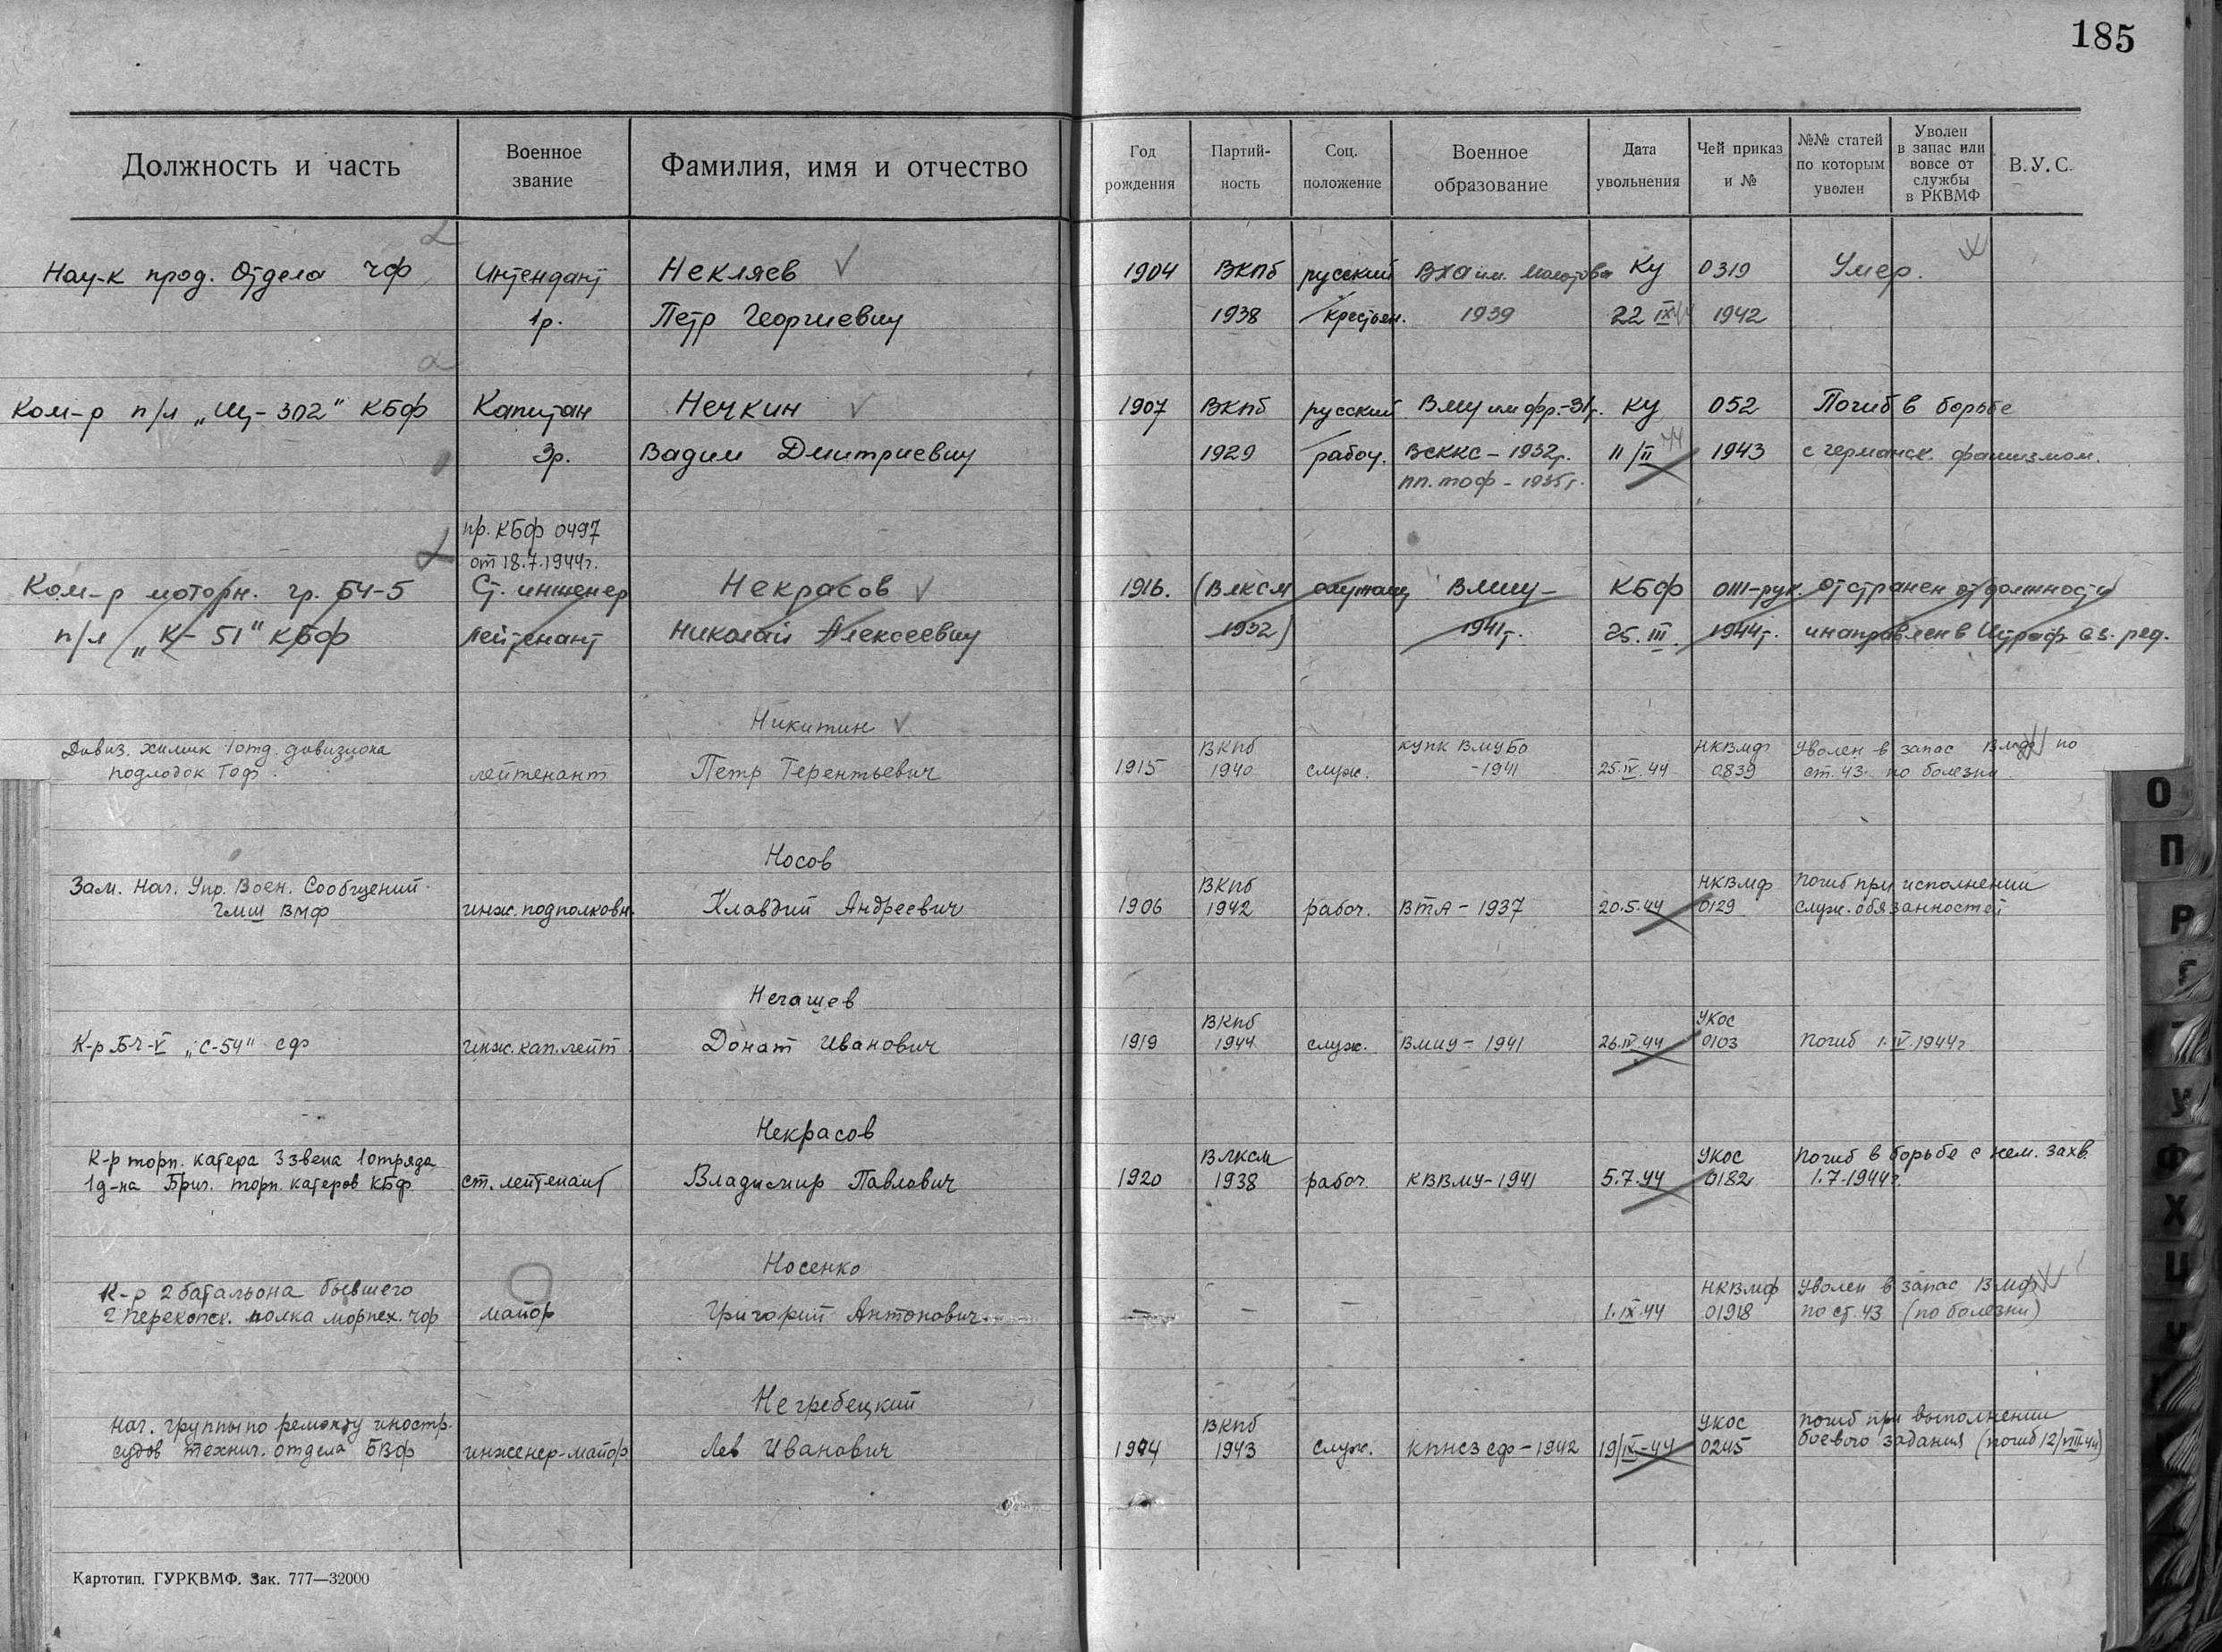 185
Должность и часть | Военное звание | Фамилия, имя и отчество | Год рождения | Партий-ность | Соц. положение | Военное образование | Дата увольнения | Чей приказ и № | №№ статей по которым уволен | Уволен в запас или вовсе от службы в РКВМФ | В.У.С.
Нач-к прод. Отдела ЧФ | Интендант | Некляев | 1904 | ВКПб | русский | ВХА им. Молотова | КУ | 0319 | Умер.
1р. | Петр Георгиевич | 1938 | крестьян. | 1939 | 22 IX | 1942
Ком-р п/л „Щ-302" КБФ | Капитан | Нечкин | 1907 | ВКПб | русский | ВМУ им фр.-31г. | КУ | 052 | Погиб в борьбе
3р. | Вадим Дмитриевич | 1929 | рабоч. | ВСККС - 1932г. | 11/II 44 | 1943 | с германск. фашизмом.
пп. тоф - 1935г.
пр. КБФ 0497
от 18.7.1944г.
Ком-р моторн. гр. БЧ-5 | Ст. инженер | Некрасов | 1916. | (ВЛКСМ | служащ | ВМИУ - | КБФ | отстранен от должности
п/л „К-51" КБФ | лейтенант | Николай Алексеевич | 1932) | 1941г. | 25.III. | 1944г. | и направлен в Штраф. вз. ред.
Никитин
Дивиз. химик 1 отд. дивизиона | ВКПб | КУПК ВМУБО | НКВМФ | Уволен в запас ВМФ по
подлодок ТОФ. | лейтенант | Петр Терентьевич | 1915 | 1940 | служ. | -1941 | 25.IV.44 | 0839 | ст. 43 по болезни
Носов
Зам. Нач. Упр. Воен. Сообщений | ВКПб | НКВМФ | Погиб при исполнении
ГМШ ВМФ | инж. подполковн. | Клавдий Андреевич | 1906 | 1942 | рабоч. | ВТА - 1937 | 20.5.44 | 0129 | служ. обязанностей
Нечашев
ВКПб | УКОС
К-р БЧ-V „С-54" СФ | инж. кап. лейт. | Донат Иванович | 1919 | 1944 | служ. | ВМИУ - 1941 | 26.IV.44 | 0103 | Погиб 1.IV.1944г
Некрасов
К-р торп. катера 3 звена 1 отряда | ВЛКСМ | УКОС | Погиб в борьбе с нем. захв.
1 д-на Бриг. торп. катеров КБФ | ст. лейтенант | Владимир Павлович | 1920 | 1938 | рабоч. | КВВМУ-1941 | 5.7.44 | 0182 | 1.7.1944г.
Носенко
К-р 2 батальона бывшего | - | НКВМФ | Уволен в запас ВМФ
2 перекопск. полка морпех. ЧФ | майор | Григорий Антонович | - | - | - | - | 1.IX.44 | 01918 | по ст. 43 (по болезни)
Негребецкий
Нач. группы по ремонту иностр. | ВКПб | УКОС | погиб при выполнении
судов технич. отдела БВФ | инженер-майор | Лев Иванович | 1914 | 1943 | служ. | КПНСЗ СФ - 1942 | 19/IX-44 | 0245 | боевого задания (погиб 12/VIII.44)
Картотип. ГУРКВМФ. Зак. 777—32000
О
П
Р
Г
У
Ф
Х
Ц